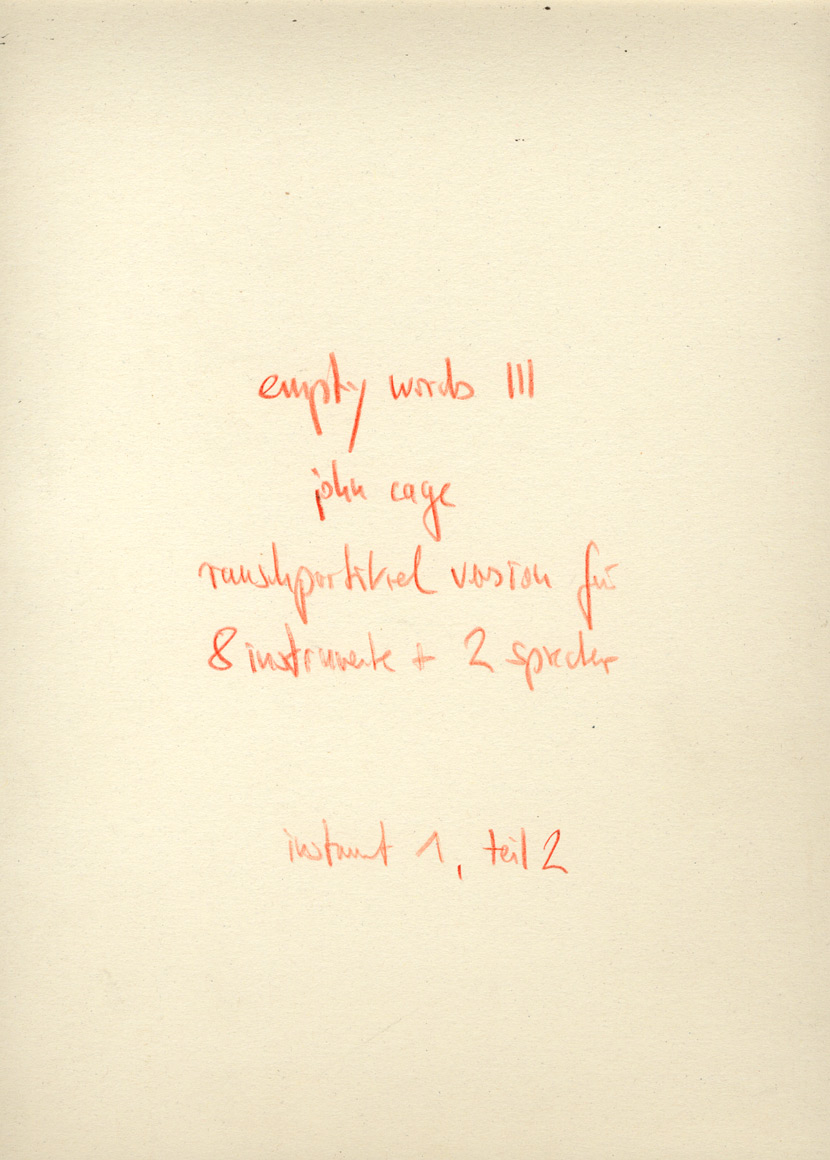 empty words III
john cage
rauschpartikel version für
8 instrumente + 2 sprecher
instant 1, teil 2